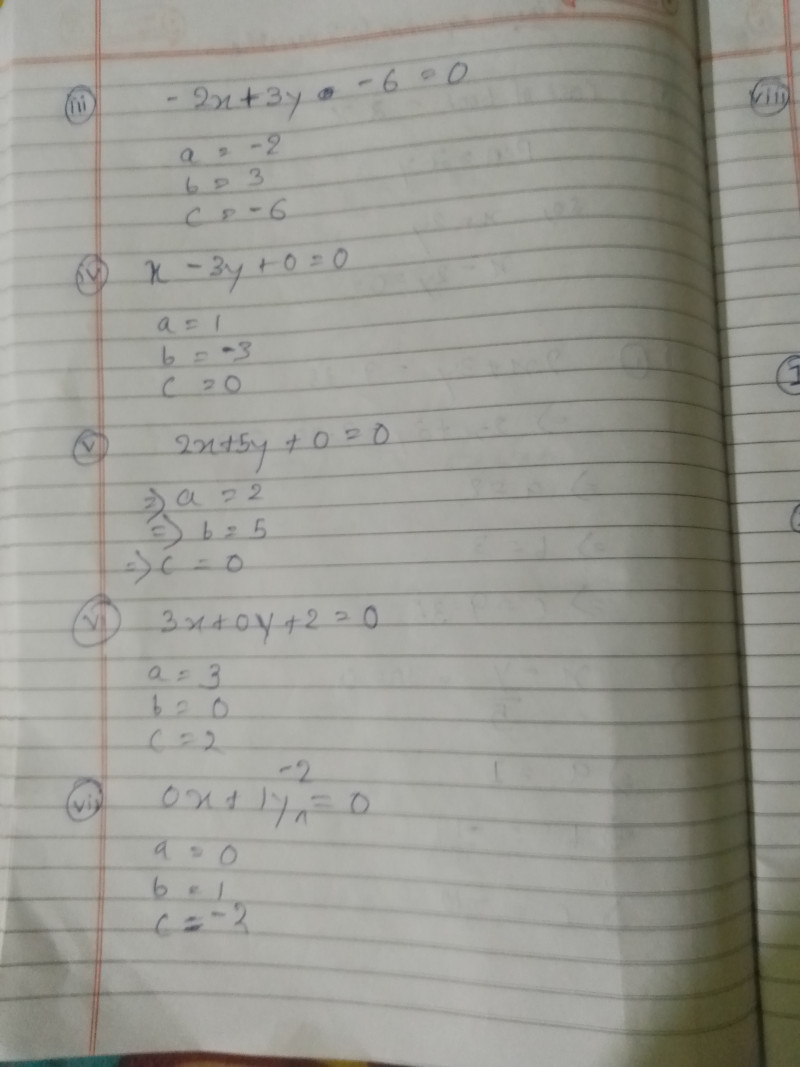 iii -2x+3y -6 = 0
a = -2
b = 3
c = -6
iv x -3y+0=0
a = 1
b = -3
c = 0
v 2x+5y+0=0
=> a = 2
=> b = 5
=> c = 0
vi 3x+0y+2=0
a = 3
b = 0
c = 2
vii 0x+1y -2 = 0
a = 0
b = 1
c = -2
viii